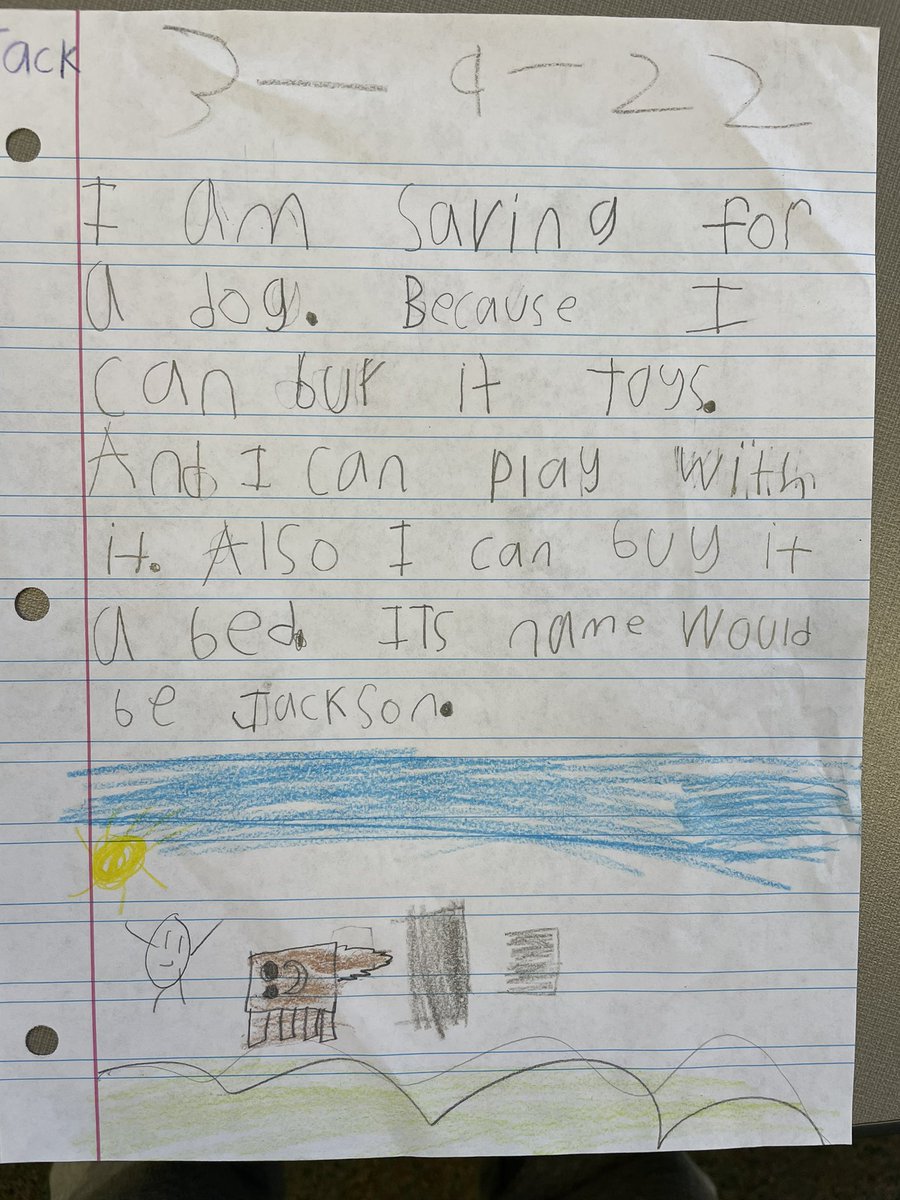 Jack
3-9-22
I am saving for
a dog. Because I
can buy it toys.
And I can play with
it. Also I can buy it
a bed. ITs name would
be Jackson.